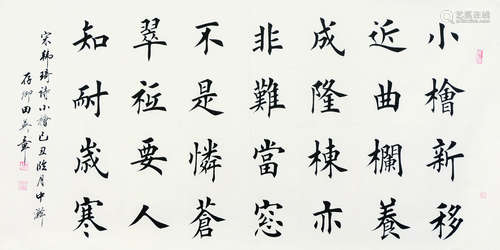 小檜新移
近曲欄養
成隆棟亦
非難當窓
不是憐蒼
翠祗要人
知耐歲寒
宋韓琦詩小檜己丑臘月中澣
存卿田英章